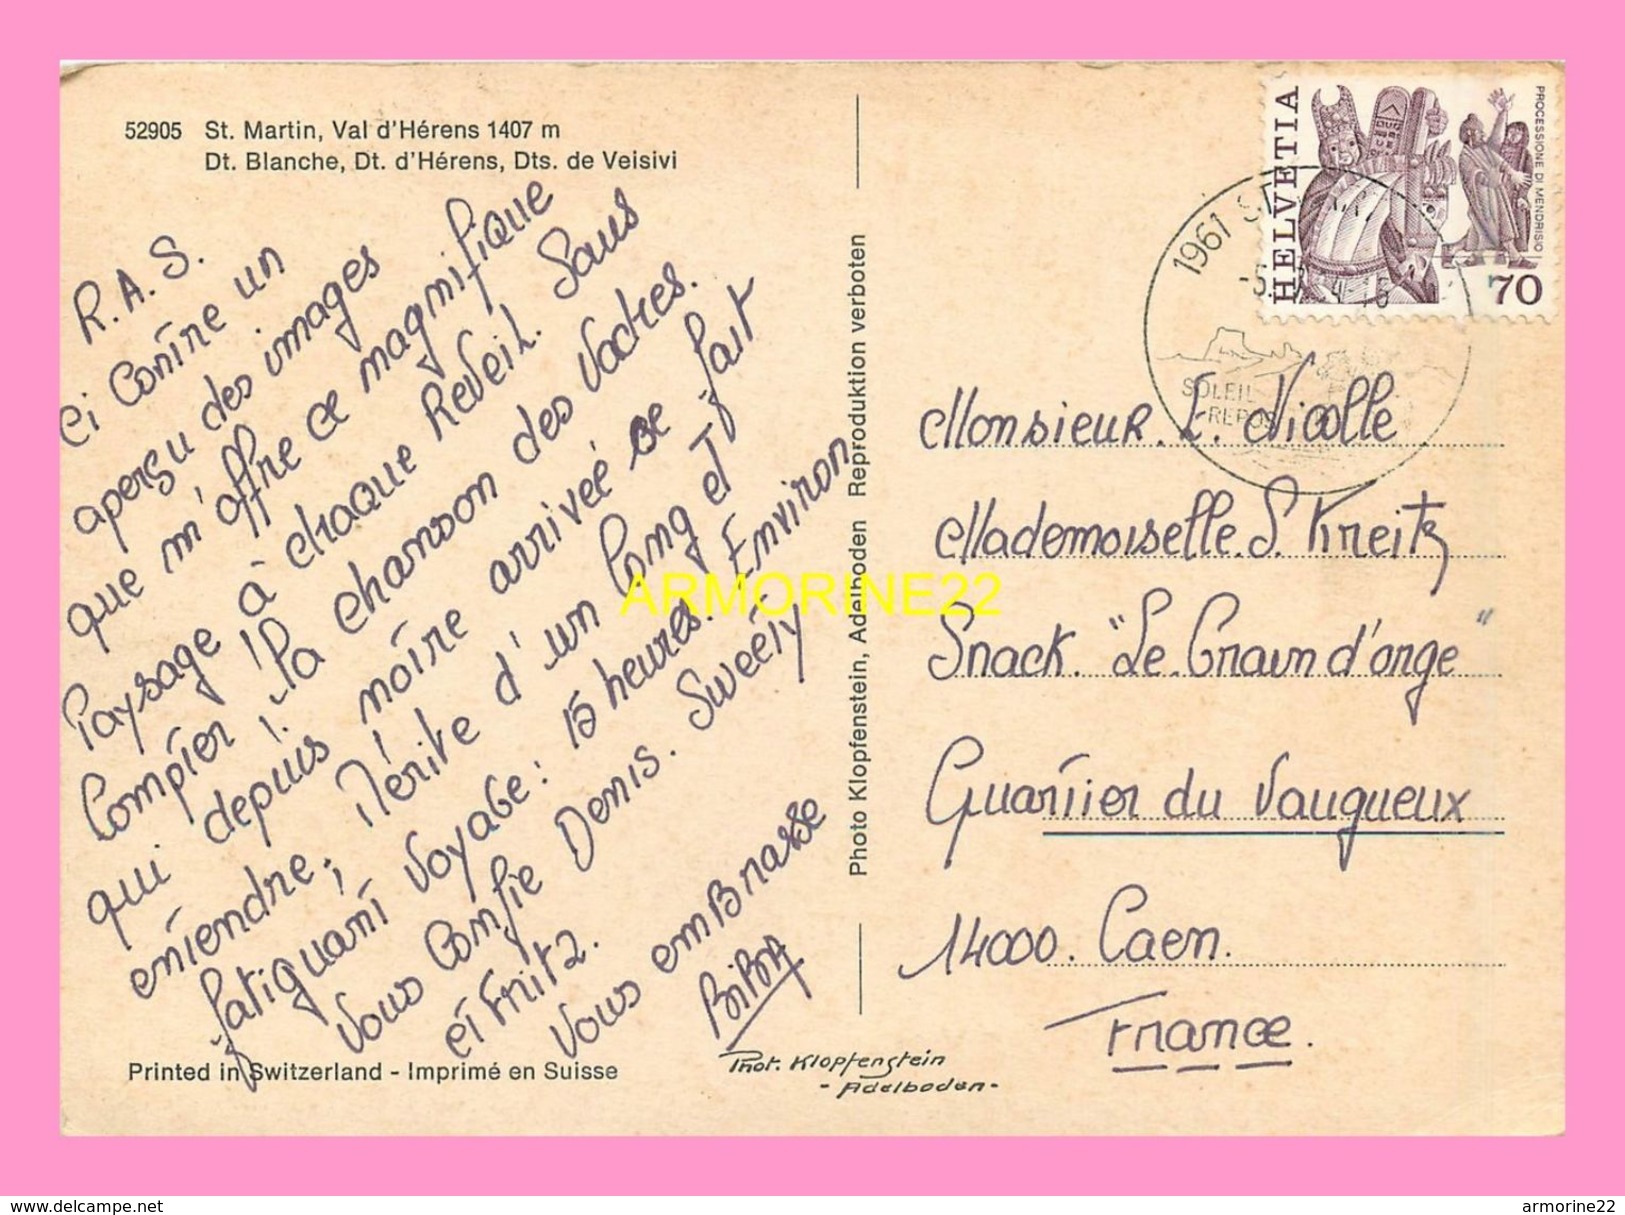 52905 St. Martin, Val d'Hérens 1407 m
Dt. Blanche, Dt. d'Hérens, Dts. de Veisivi
R.A.S.
Ci contre un
aperçu des images
que m'offre ce magnifique
Paysage à chaque Reveil. Sans
Compter la chanson des vaches.
qui depuis notre arrivée se fait
entendre; Mérite d'un long et
fatiguant Voyage: 15 heures. Environ
Vous Confie Denis. Sweety
et Fritz.
Vous emBrasse
Printed in Switzerland - Imprimé en Suisse
Phot. Klopfenstein
- Adelboden -
Photo Klopfenstein, Adelboden Reproduktion verboten
HELVETIA
PROCESSIONE DI MENDRISIO
70
1961
SOLEIL
REPOS
Monsieur. E. Nicolle
Mademoiselle. S. Kreitz
Snack. "Le Grain d'orge"
Quartier du Vaugueux
14000. Caen.
France.
ARMORINE22
delcampe.net
armorine22